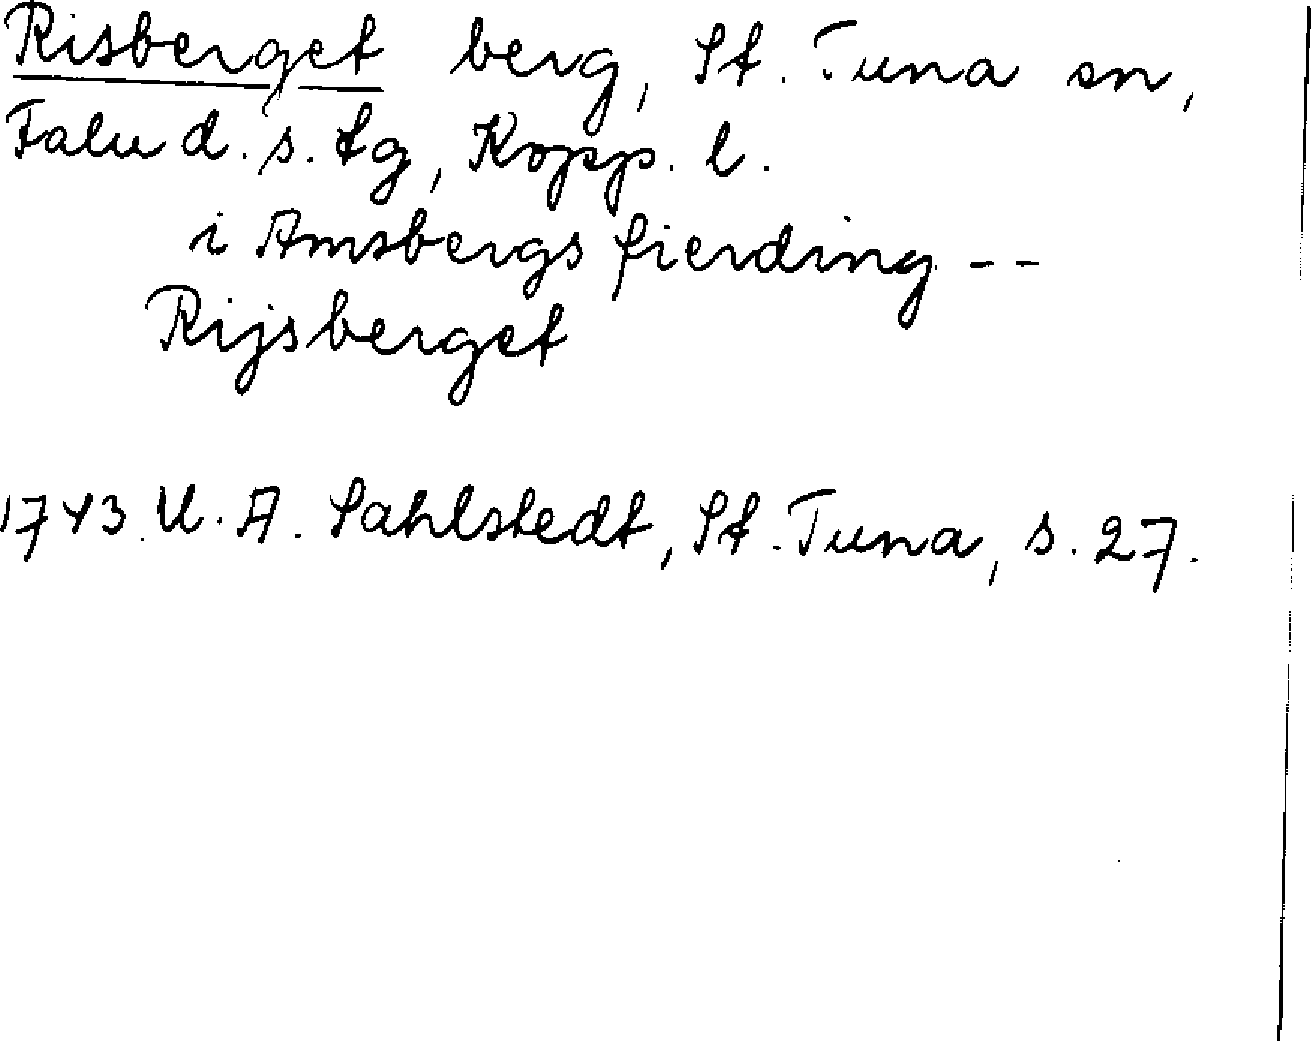 Risberget berg, St. Tuna sn,
Falu d. s. tg, Kopp. l.
i Amsbergs fierding --
Rijsberget
1743 U. A. Sahlstedt, St. Tuna, s. 27.